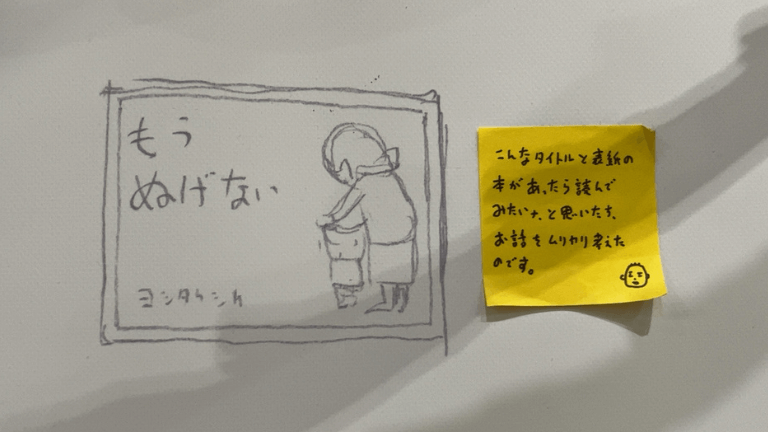 もう
ぬげない
ヨシタケシンスケ
こんなタイトルと表紙の
本があったら読んで
みたいナ、と思いたち、
お話をムリヤリ考えた
のです。